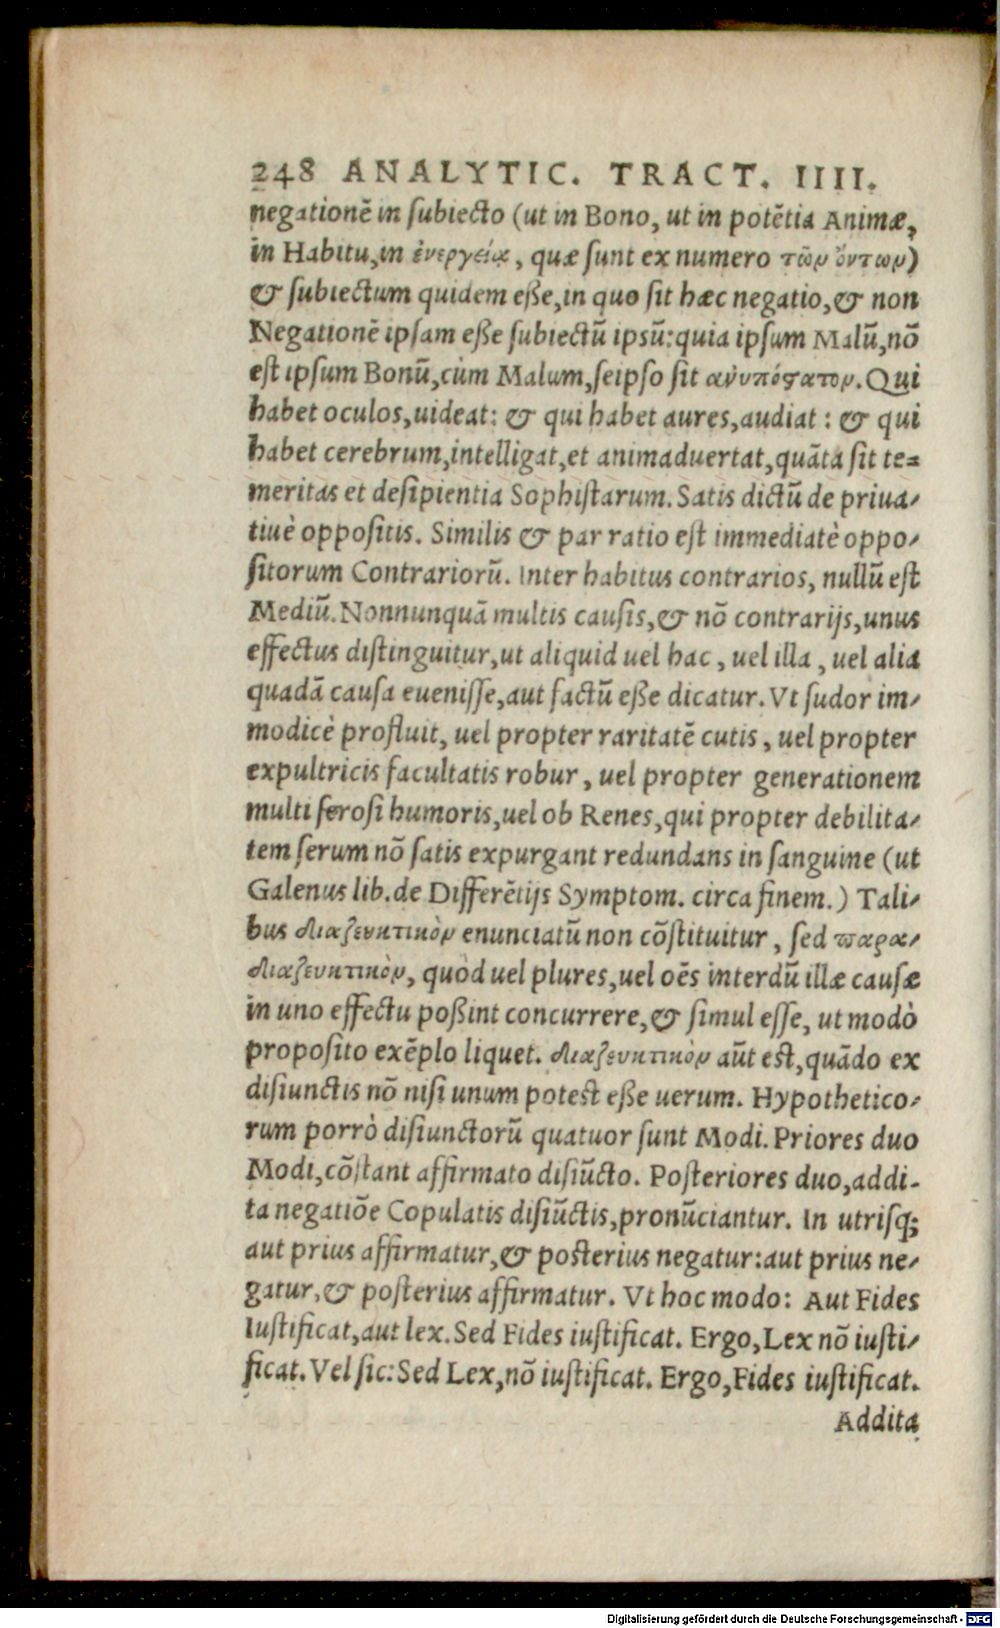 248 ANALYTIC. TRACT. IIII.
negationē in ſubiecto (ut in Bono, ut in potētia Animæ,
in Habitu,in ἐνεργείᾳ, quæ ſunt ex numero τῶν ὄντων)
& ſubiectum quidem eße,in quo ſit hæc negatio,& non
Negationē ipſam eße ſubiectū ipsū:quia ipſum Malū,nō
eſt ipſum Bonū,cùm Malum,ſeipſo ſit ἀνυπόϛατον. Qui
habet oculos,uideat: & qui habet aures,audiat: & qui
habet cerebrum,intelligat,et animaduertat,quāta ſit te=
meritas et deſipientia Sophiſtarum. Satis dictū de priua-
tiuè oppoſitis. Similis & par ratio eſt immediatè oppo-
ſitorum Contrariorū. Inter habitus contrarios, nullū eſt
Mediū. Nonnunquā multis cauſis,& nō contrarijs,unus
effectus diſtinguitur,ut aliquid uel hac, uel illa, uel alia
quadā cauſa eueniſſe,aut factū eße dicatur. Vt ſudor im-
modicè profluit, uel propter raritatē cutis, uel propter
expultricis facultatis robur, uel propter generationem
multi ſeroſi humoris,uel ob Renes,qui propter debilita-
tem ſerum nō ſatis expurgant redundans in ſanguine (ut
Galenus lib.de Differētijs Symptom. circa finem.) Tali-
bus διαζευκτικὸν enunciatū non cōſtituitur, ſed παρα-
διαζευκτικὸν, quòd uel plures,uel oēs interdū illæ cauſæ
in uno effectu poßint concurrere,& ſimul eſſe, ut modò
propoſito exēplo liquet. διαζευκτικὸν aūt eſt,quādo ex
diſiunctis nō niſi unum poteſt eße uerum. Hypothetico-
rum porrò diſiunctorū quatuor ſunt Modi. Priores duo
Modi,cōſtant affirmato diſiūcto. Poſteriores duo,addi-
ta negatiōe Copulatis diſiūctis,pronūciantur. In utriſq;
aut prius affirmatur,& poſterius negatur:aut prius ne-
gatur,& poſterius affirmatur. Vt hoc modo: Aut Fides
Iuſtificat,aut lex. Sed Fides iuſtificat. Ergo,Lex nō iuſti-
ficat. Vel ſic: Sed Lex,nō iuſtificat. Ergo,Fides iuſtificat.
Addita
Digitalisierung gefördert durch die Deutsche Forschungsgemeinschaft - DFG